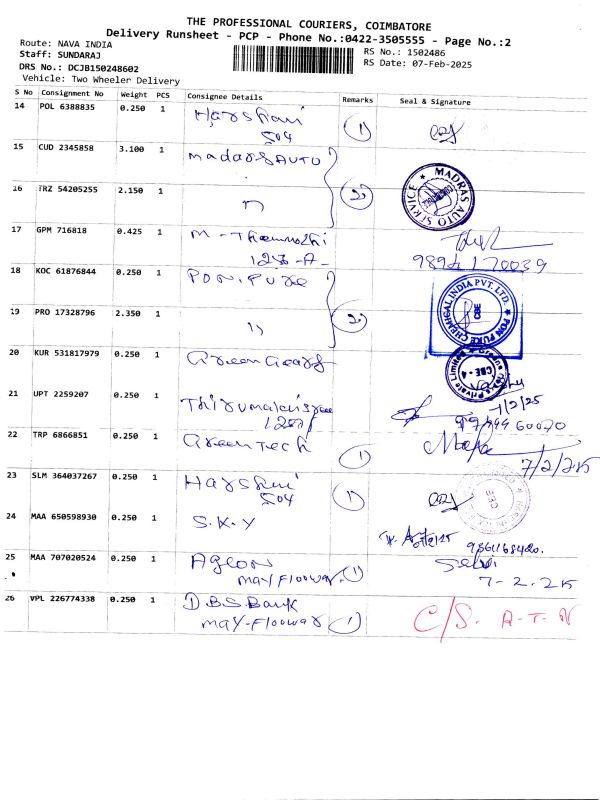 THE PROFESSIONAL COURIERS, COIMBATORE
Delivery Runsheet - PCP - Phone No.:0422-3505555 - Page No.:2
Route: NAVA INDIA
Staff: SUNDARAJ
DRS No.: DCJB150248602
Vehicle: Two Wheeler Delivery
RS No.: 1502486
RS Date: 07-Feb-2025
S No Consignment No Weight PCS Consignee Details Remarks Seal & Signature
14 POL 6388835 0.250 1 Harshani 504 1
15 CUD 2345858 3.100 1 Madars AUTO 2
MADRAS AUTO SERVICE
16 TRZ 54205255 2.150 1 "
17 GPM 716818 0.425 1 M-
9894170039
18 KOC 61876844 0.250 1 PONPURE 2
PON PURE CHEMICAL INDIA PVT. LTD. CBE
19 PRO 17328796 2.350 1 "
20 KUR 531817979 0.250 1 Green Gears
Private Limited CBE - 4
21 UPT 2259207 0.250 1
7/2/25
22 TRP 6866851 0.250 1 Green Tech 1
7/2/25
23 SLM 364037267 0.250 1 Harshani 504 1
CBE
24 MAA 650598930 0.250 1 S.K.Y
07/2/25
25 MAA 707020524 0.250 1 Ageon May Floowar 1
Selvi
7-2.25
26 VPL 226774338 0.250 1 DBS Bank May-Floowar 1
C/S. A-T-N